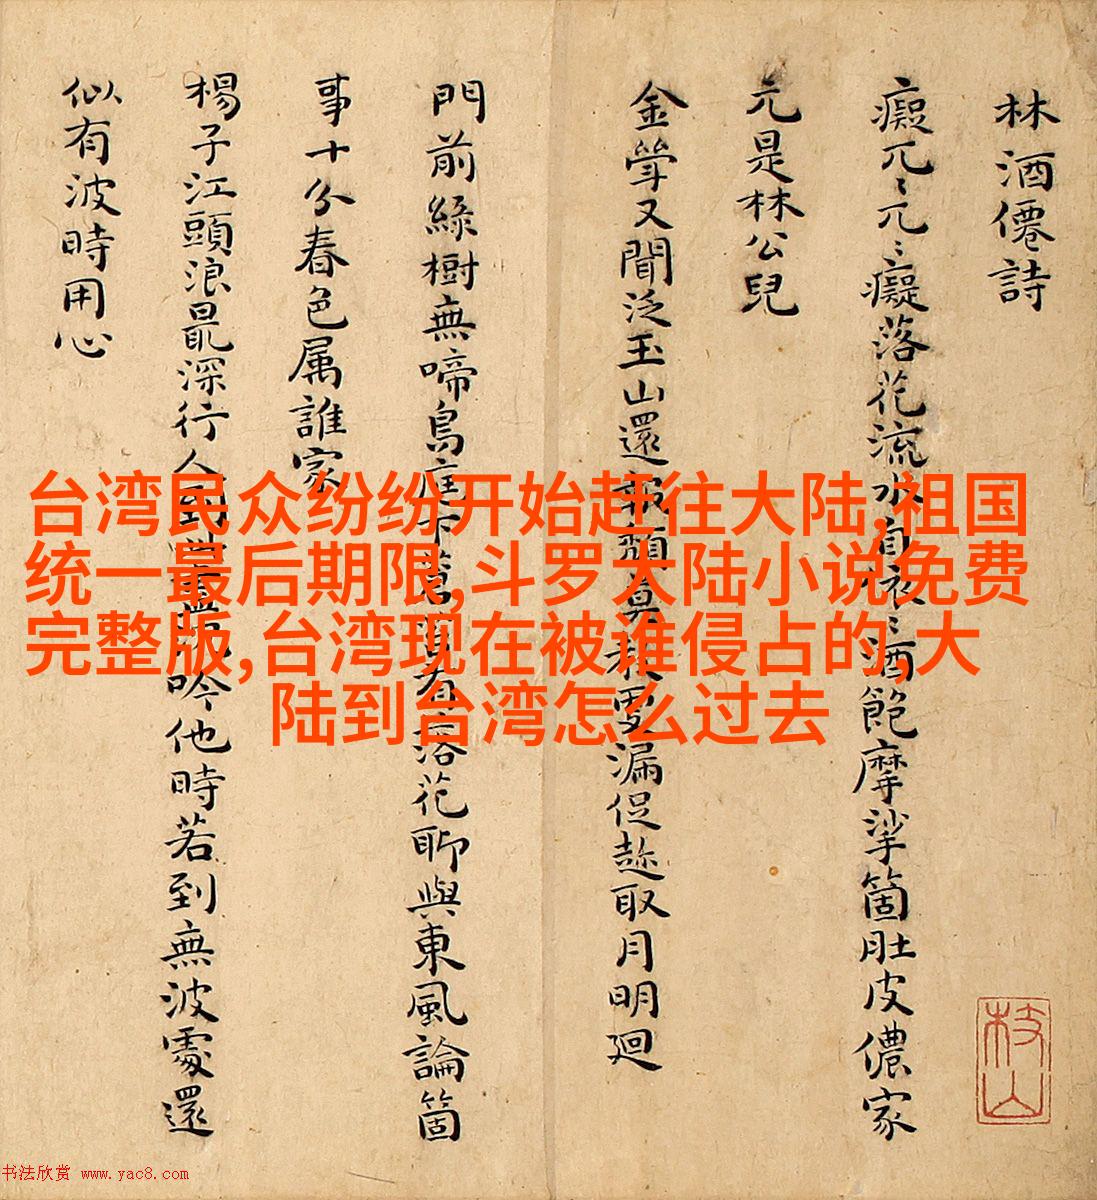 林酒僊詩
癡兀〻兀〻癡落花流水自依〻酒飽摩挲箇肚皮儂家
元是林公兒
金斝又聞泛玉山還報頹莫教更漏促趂取月明廻
門前綠樹無啼鳥庭下蒼苔有落花聊與東風論箇
事十分春色属誰家
楊子江頭浪最深行人到此盡沉吟他時若到無波處還
似有波時用心
枝山
台湾民众纷纷开始赶往大陆,祖国
统一最后期限,斗罗大陆小说免费
完整版,台湾现在被谁侵占的,大
陆到台湾怎么过去
书法欣赏 www.yac8.com